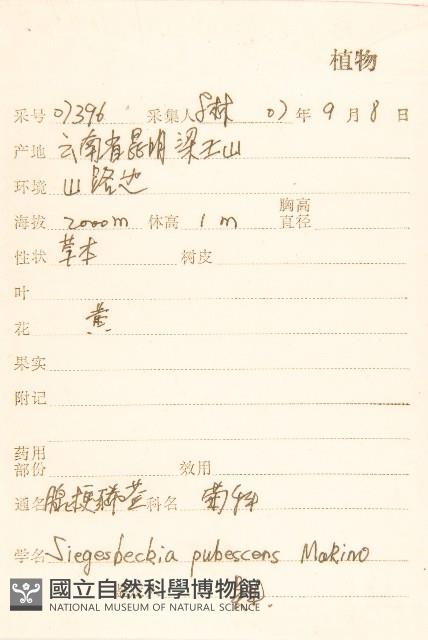 植物
采号 07396 采集人 林 07年9月8日
产地 云南省昆明梁王山
环境 山路边
海拔 2000m 体高 1m 胸高直径
性状 草本 树皮
叶
花 黄
果实
附记
药用部份 效用
通名 腺梗豨莶 科名 菊科
学名 Siegesbeckia pubescens Makino
國立自然科學博物館
NATIONAL MUSEUM OF NATURAL SCIENCE